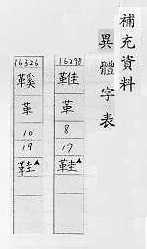 補充資料
異體字表
16298
革
8
17
鞋▲
16326
鞵
革
10
19
鞋▲